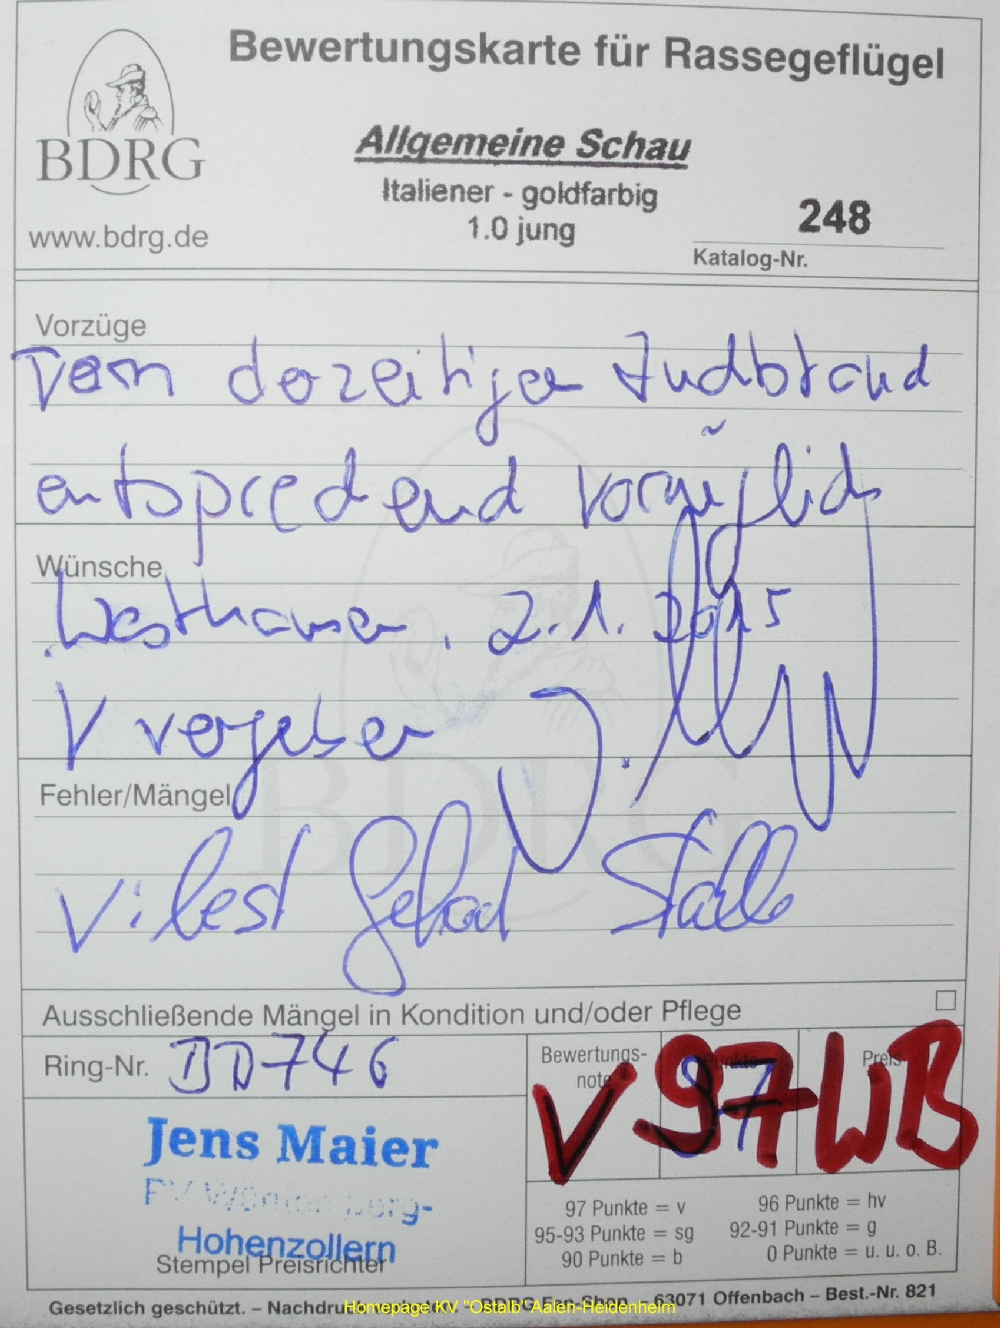 Bewertungskarte für Rassegeflügel
BDRG
www.bdrg.de
Allgemeine Schau
Italiener - goldfarbig
1.0 jung
248
Katalog-Nr.
Vorzüge
Dem derzeitigen Zuchtstand
entsprechend vorzüglich
Wünsche
Westhausen, 2.1.2015
V vergeben J.
Fehler/Mängel
V: best Gerhard
BDRG
Ausschließende Mängel in Kondition und/oder Pflege
Ring-Nr. BD746
Bewertungs-
note
Punkte
Preis
V 97 WB
97
Jens Maier
PV Württemberg-
Hohenzollern
Stempel Preisrichter
97 Punkte = v 96 Punkte = hv
95-93 Punkte = sg 92-91 Punkte = g
90 Punkte = b 0 Punkte = u. u. o. B.
Gesetzlich geschützt. – BDRG Fan-Shop – 63071 Offenbach – Best.-Nr. 821
Homepage KV "Ostalb" Aalen-Heidenheim